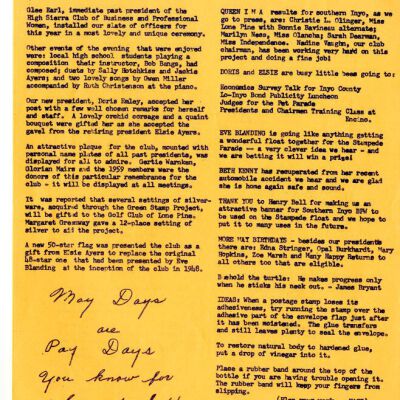 Olee Earl, immediate past president of the
High Sierra Club of Business and Professional
Women, installed our slate of officers for
this in a most lovely and unique ceremony.
Other events of the evening that were enjoyed
were: local high school students playing a
composition their instructor, Bob Bange, had
composed; duets by Sally Hotchkiss and Jackie
Ayers; and two lovely songs by Owen Miller
accompanied by Ruth Christenson at the piano.
Our new president, Doris Haley, accepted her
post with a few well chosen remarks for herself
and staff. A lovely orchid corsage and a quaint
bouquet were gifted her as she accepted the
gavel from the retiring president Elsie Ayers.
An attractive plaque for the club, mounted with
personal name plates of all past presidents, was
displayed for all to admire. Gertie
and the 1959 members were the
donors of this particular remembrance for the
club - it will be displayed at all meetings.
It was reported that several settings of silver-
ware, acquired through the Green Stamp Project,
will be gifted to the Golf Club of Lone Pine.
Margaret Greenway gave a 12-place setting of
silver to aid the project.
A new 50-star flag was presented the club as a
gift from Elsie Ayers to replace the original
48-star one that had been presented by Eve
Blanding at the inception of the club in 1948.
May Days
are
Pay Days
You know for
QUEEN I M A results for southern Inyo, as we
go to press, are: Christie L. Olinger, Miss
Lone Pine with Bonnie Bavineau alternate;
Marilyn Ness, Miss Olancha; Sarah Dearman,
Miss Independence. Nadine Vaughn, our club
chairman, has been working very hard on this
project and doing a fine job!
DORIS and ELSIE are busy little bees going to:
Economics Survey Talk for Inyo County
Lo-Inyo Bond Publicity Luncheon
Judges for the Pet Parade
Presidents and Chairmen Training Class at
Encino.
EVE BLANDING is going like anything getting
a wonderful float together for the Stampede
Parade -- a very clever idea we hear - and
we are betting it will win a prize!
BETH KENNY has recuperated from her recent
automobile accident we hear and we are glad
she is home again safe and sound.
THANK YOU to Henry Bell for making us an
attractive banner for Southern Inyo BPW to
be used on the Stampede float and we hope to
put it to many uses in the future.
MORE MAY BIRTHDAYS - besides our presidents
there are: Edna Stringer, Opal Burkhardt, Mary
Hopkins, Zoe Marsh and Many Happy Returns to
all others too that are eligible.
Behold the turtle: He makes progress only
when he sticks his neck out. - James Bryant
IDEAS: When a postage stamp loses its
adhesiveness, try running the stamp over the
adhesive part of the envelope flap just after
it has been moistened. The glue transfers
and still leaves plenty to seal the envelope.
To restore natural body to hardened glue,
put a drop of vinegar into it.
Place a rubber band around the top of the
bottle if you are having trouble opening it.
The rubber band will keep your fingers from
slipping.